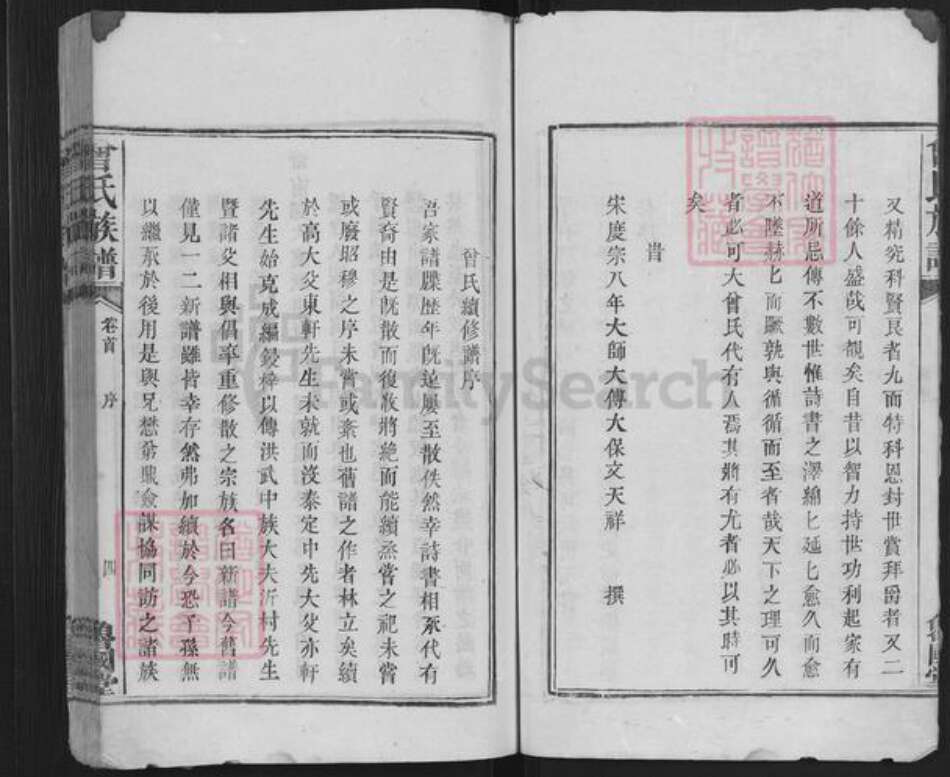 又精究科賢良者九而特科恩封世賞拜爵者又二
十餘人盛哉可觀矣自昔以智力持世功利起家有
道所忌傳不數世惟詩書之澤綿匕延匕愈久而愈
不墜赫匕而 孰與循循而至者哉天下之理可久
者必可大曾氏代有人焉其將有尤者必以其時可
矣
昔
宋度宗八年大師大傅大保文天祥 撰
曾氏族譜
魯國堂
曾氏續修譜序
吾家譜牒歷年既遠屢至散佚然幸詩書相承代有
賢裔由是既散而復收將絶而能續烝嘗之祀未嘗
或廢昭穆之序未嘗或紊也舊譜之作者林立矣續
於高大父東軒先生未就而沒泰定中先大父亦軒
先生始克成編鋟梓以傳洪武中族大夫沂村先生
暨諸父相與倡率重修散之宗族名曰新譜今舊譜
僅見一二新譜雖皆幸存然弗加續於今恐子孫無
以繼承於後用是與兄懋弟 僉謀協同訪之諸族
曾氏族譜
卷首 序
四
魯國堂
FamilySearch